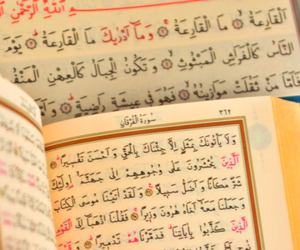 القارعة ۝ ما القارعة ۝ وما أدريك ما القارعة ۝ يوم
الناس كالفراش المبثوث ۝ وتكون الجبال كالعهن المنف
فأما من ثقلت موازينه ۝ فهو في عيشة راضية ۝
٣٦٢
سورة الفرقان
ولا يأتونك بمثل إلا جئناك بالحق وأحسن تفسيرا ۝
الذين يحشرون على وجوههم إلى جهنم أولئك
شر مكانا وأضل سبيلا ۝ ولقد آتينا موسى الكتاب
وجعلنا معه أخاه هرون وزيرا ۝ فقلنا اذهبا إلى القوم
الذين كذبوا بآياتنا فدمرناهم تدميرا ۝